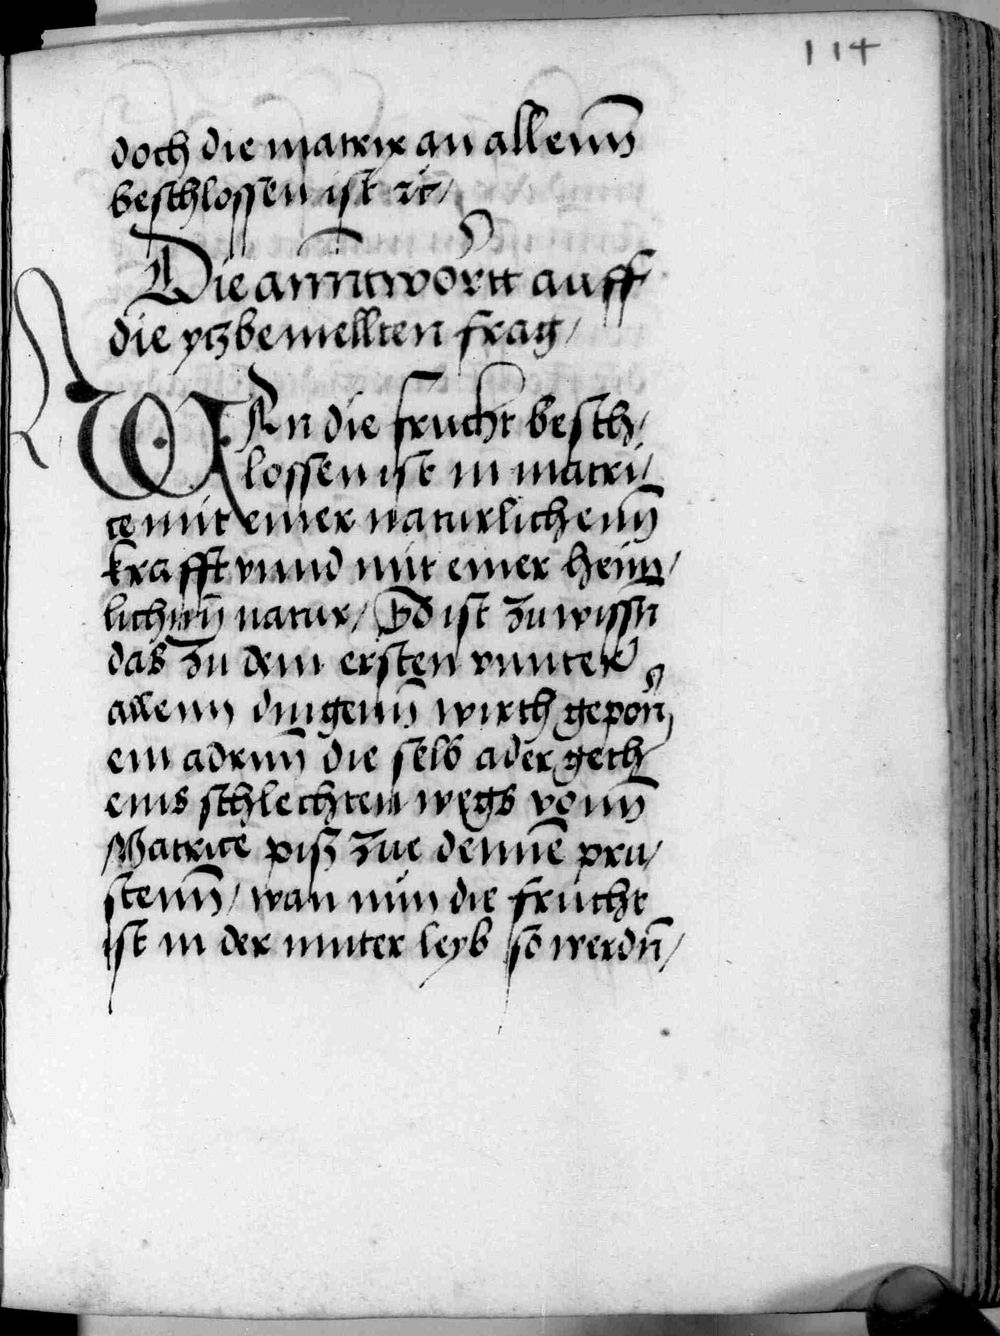 114
doch die matrix an allenn̄
beschlossen ist ꝛc /
Die anntwortt auff
die ytzbemellten frag /
WAn die frucht besch /
lossen ist in matri /
ce mit einer naturlichenn̄
krafft vnnd mit einer heim /
lichenn̄ natur / So ist zu wissn̄
das zu dem ersten vnnter
allenn dingenn̄ wirth geporn̄
ein adrnn̄ die selb ader geth
eins schlechten wegs vonn̄
Matrice pisz zue dennē pru /
stenn̄ / wan nun die frucht
ist in der muter leyb so werdn̄ /